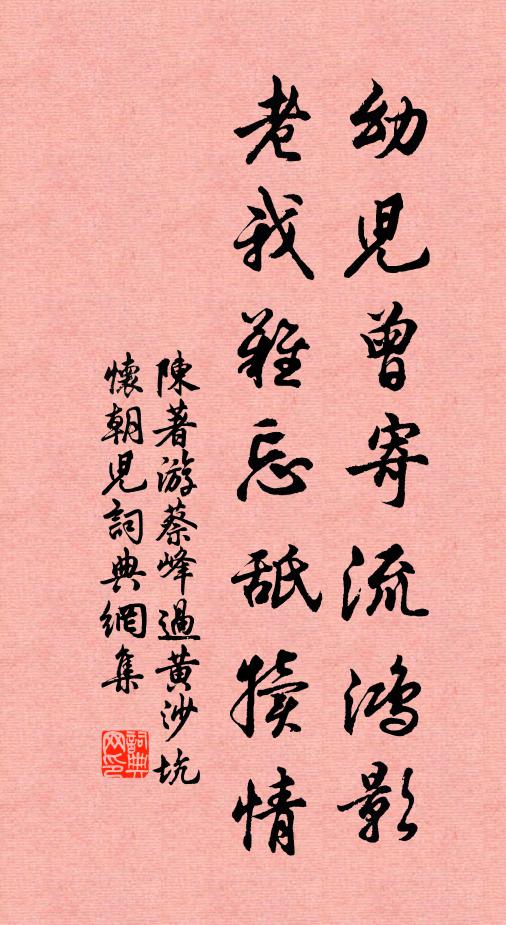 幼兒曾寄流鴻影
老我難忘舐犢情
陳著游蔡峰過黄沙坑
懷朝兒詞典網集
詞典网印